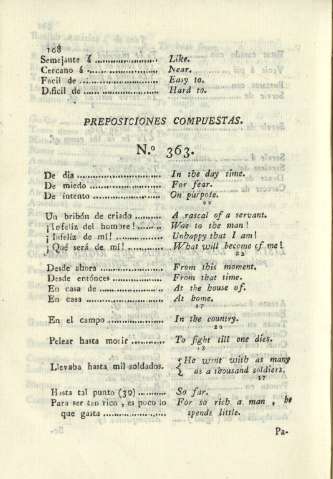 108
Semejante á ..................... Like.
Cercano á ..................... Near.
Facil de ..................... Easy to.
Dificil de ..................... Hard to.
PREPOSICIONES COMPUESTAS.
N.º 363.
De dia ..................... In the day time.
De miedo ..................... For fear.
De intento ..................... On purpose.
Un bribón de criado ......... A rascal of a servant.
¡Infeliz del hombre! ......... Woe to the man!
¡Infeliz de mí! ............... Unhappy that I am!
¿Qué será de mí! ............ What will become of me!
22
Desde ahora .................. From this moment.
Desde entónces ............... From that time.
En casa de ..................... At the house of.
En casa ........................ At home.
27
En el campo .................. In the country.
Pelear hasta morir ............ To fight till one dies.
Llevaba hasta mil soldados. { He went with as many
as a thousand soldiers.
27
Hasta tal punto (39) ......... So far.
Para ser tan rico, es poco lo For so rich a man, he
que gasta ..................... spends little.
Pa-